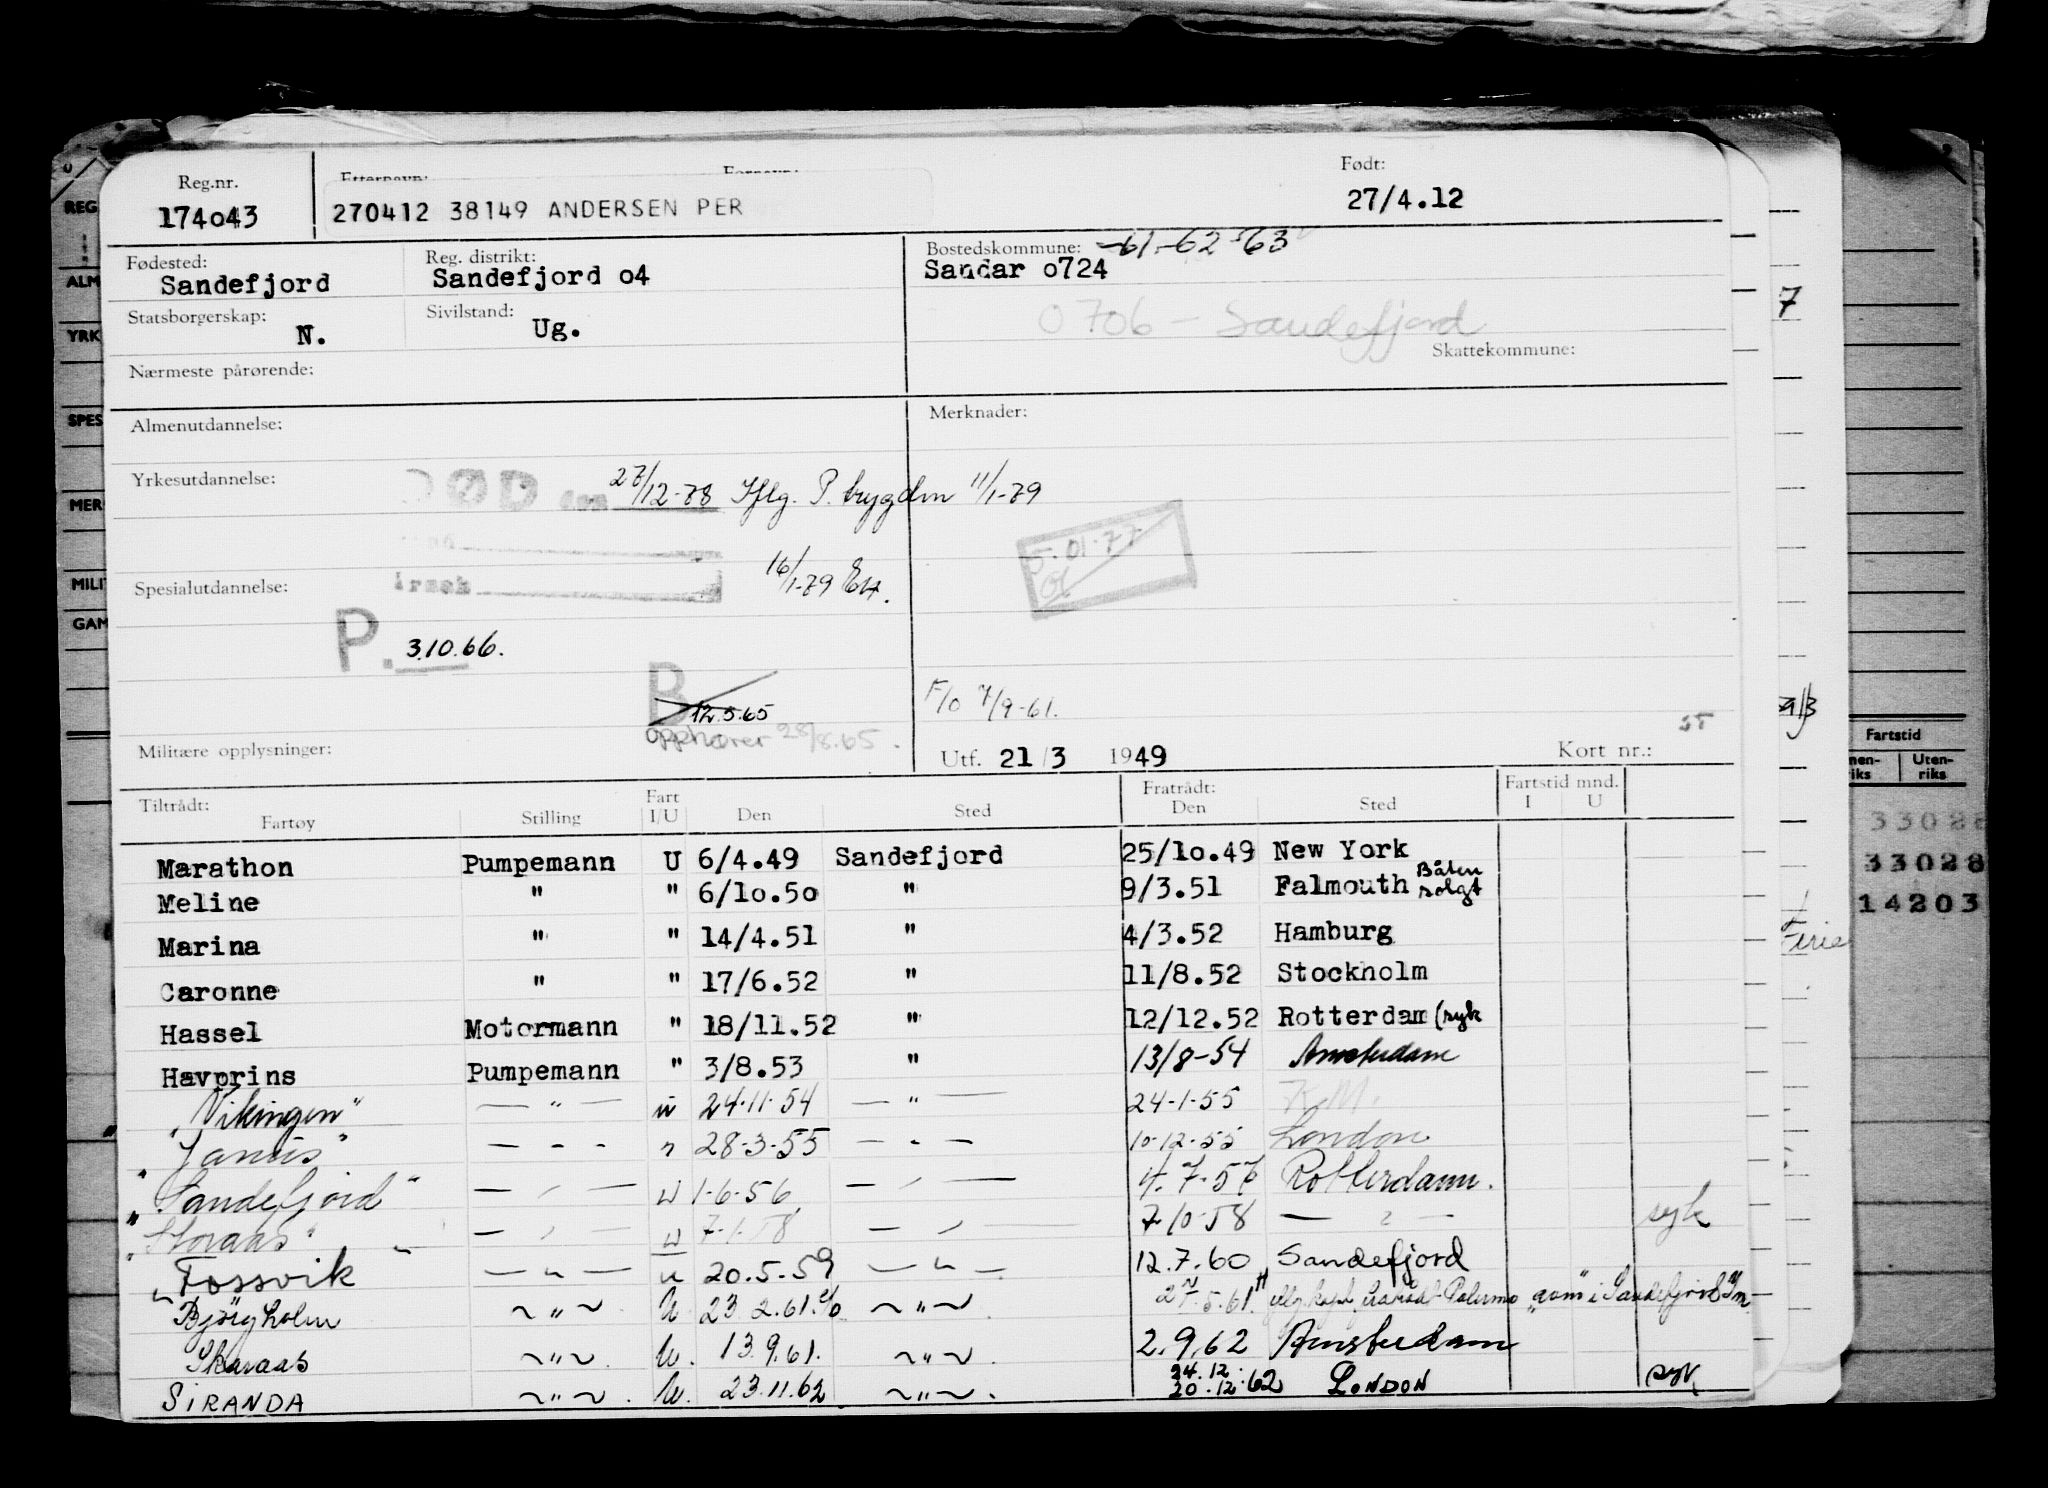 Reg.nr. Etternavn: Fornavn: Født:
174o43 270412 38149 ANDERSEN PER 27/4.12
Fødested: Reg. distrikt: Bostedskommune: -61-62-63
Sandefjord Sandefjord o4 Sandar o724
Statsborgerskap: Sivilstand: 0706 - Sandefjord
N. Ug.
Skattekommune:
Nærmeste pårørende:
Almenutdannelse: Merknader:
Yrkesutdannelse: DØD den 27/12-78 Iflg. P. trygden 11/1-79
5.01.77
Spesialutdannelse: 16/1-79
P. 3.10.66.
B 12.5.65
F/O 7/9-61.
opphører 28/8.65.
Militære opplysninger: Utf. 21/3 1949 Kort nr.:
Tiltrådt: Fratrådt: Fartstid mnd.
Fartøy Stilling Fart I/U Den Sted Den Sted I U
Marathon Pumpemann U 6/4.49 Sandefjord 25/1o.49 New York
Meline " " 6/1o.5o " 9/3.51 Falmouth Båten solgt
Marina " " 14/4.51 " 4/3.52 Hamburg
Caronne " " 17/6.52 " 11/8.52 Stockholm
Hassel Motormann " 18/11.52 " 12/12.52 Rotterdam (syk
Havprins Pumpemann " 3/8.53 " 13/8-54 Amsterdam
"Vikingen" — " — u 24.11.54 — " — 24-1-55 K.M.
"Janus" - - - " 28-3-55 — - — 10-12-55 London
"Sandefjord" — " — u 1-6-56 — " — 4.7.57 Rotterdam.
"Storaas" — " — u 7.1.58 — " — 7-10-58 — " — syk
"Fossvik" — " — u 20.5.59 — " — 12.7.60 Sandefjord
Bjørgholm ~ " ~ U 23 2.61. ~ " ~ 27.5.61 Palermo i Sandefjord
Skaraas ~ " ~ U. 13.9.61. ~ " ~ 2.9.62 Amsterdam
SIRANDA ~ " ~ U. 23.11.62 ~ " ~ 24.12 20.12.62 LONDON syk
REG
ALM
YRK
SPES
MER
MILI
GAM
7
Ferie
Fartstid
Uten-
riks
33028
14203